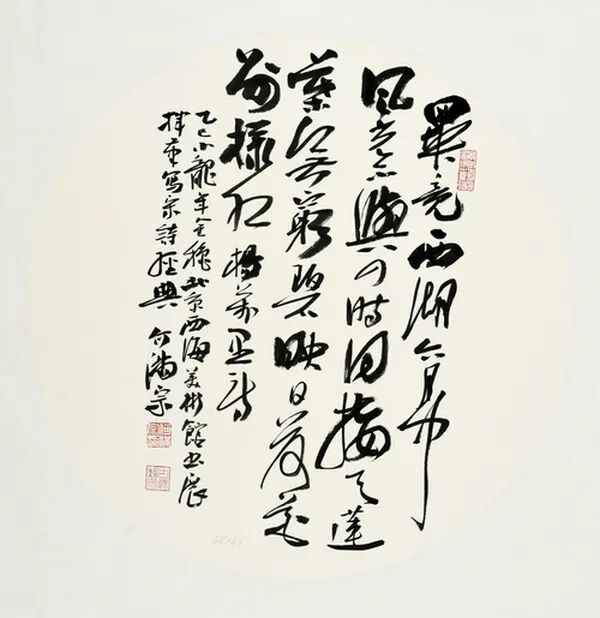 畢竟西湖六月中
風光不與四時同接天蓮
葉無窮碧映日荷花
別樣紅 楊萬里詩
乙巳小龍年金穐北京西海美術館書展
寫宋詩經典 何滿宗